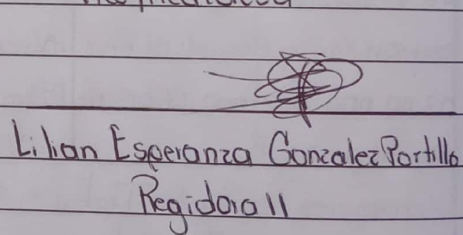 Lilian Esperanza Gonzalez Portillo
Regidora II